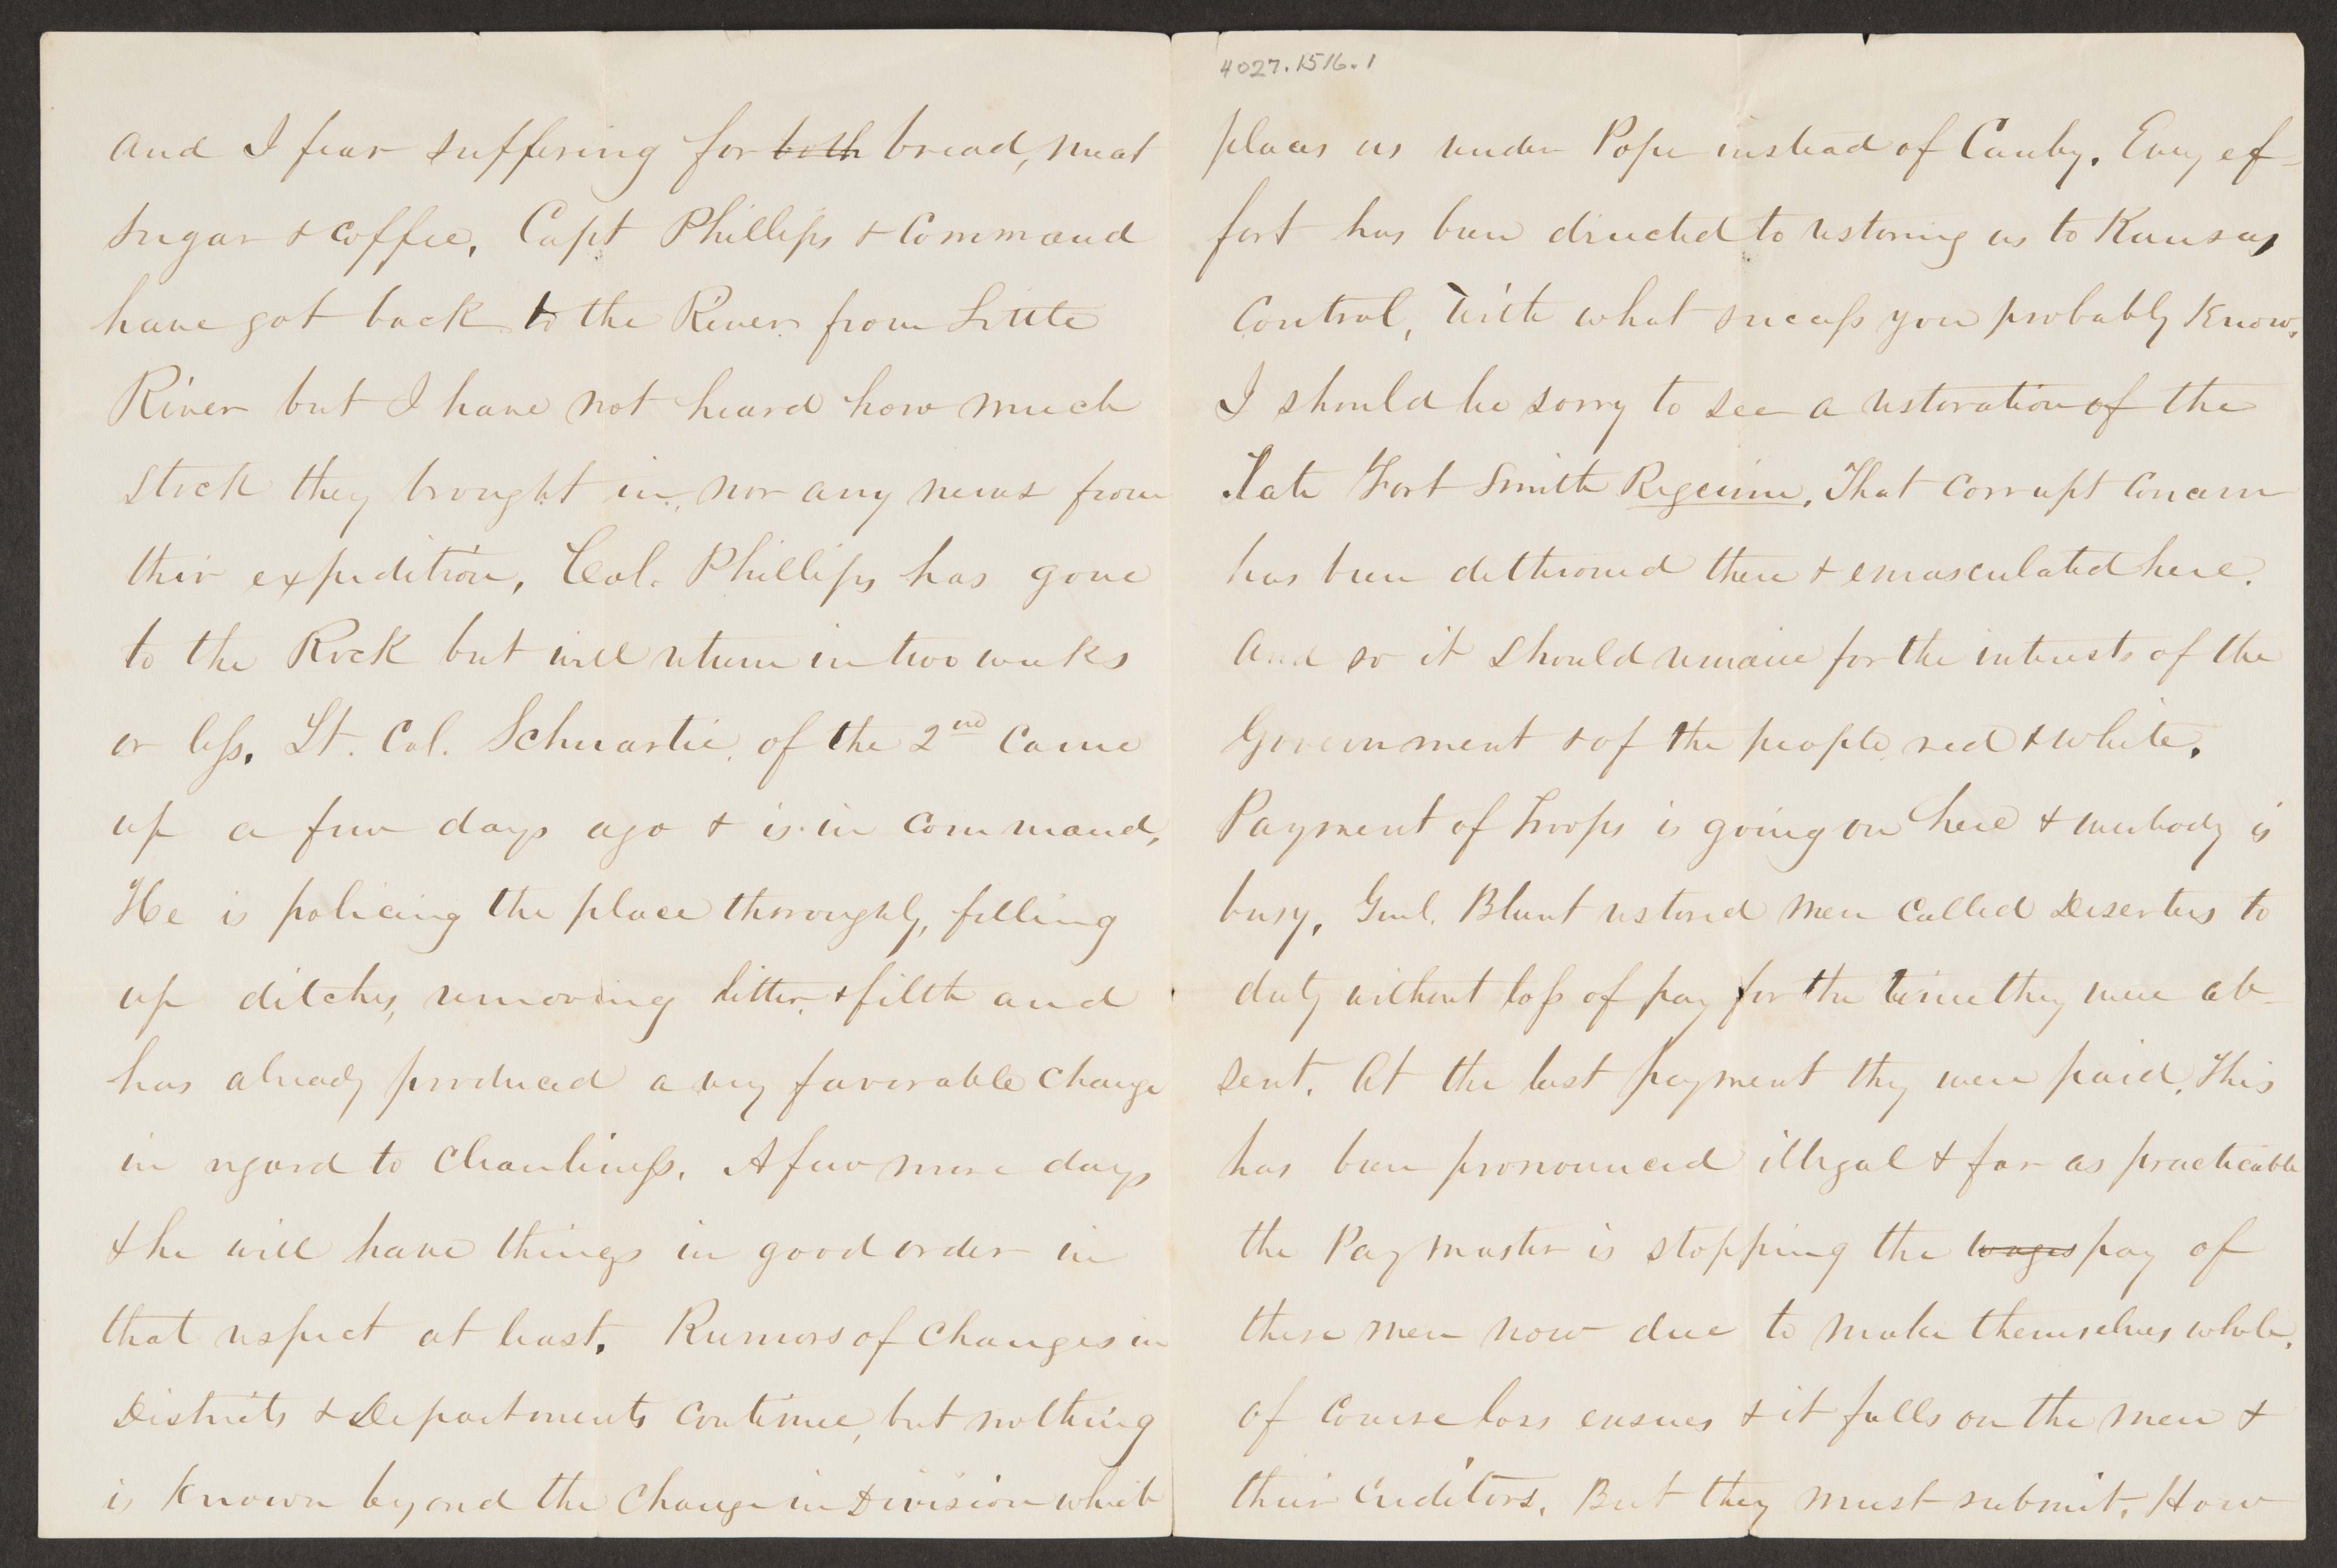 and I fear suffering for both bread, meat
sugar & coffee. Capt Phillips & Command
have got back to the River from Little
River but I have not heard how much
stock they brought in, nor any news from
their expedition. Col. Phillips has gone
to the Rock but will return in two weeks
or less. Lt. Col. Schuartie of the 2nd came
up a few days ago & is in command.
He is policing the place thoroughly, filling
up ditches, removing litter & filth and
has already produced a very favorable change
in regard to cleanliness. A few more days
& he will have things in good order in
that respect at least. Rumors of changes in
Districts & Departments continue, but nothing
is known beyond the change in Division which
4027.1516.1
places us under Pope instead of Canby. Every ef-
fort has been directed to restoring us to Kansas
control, with what success you probably know.
I should be sorry to see a restoration of the
late Fort Smith Regeime. That corrupt concern
has been dethroned there & emasculated here.
And so it should remain for the interests of the
Government & of the people, red & white.
Payment of troops is going on here & everbody is
busy. Genl. Blunt restored men called Deserters to
duty without loss of pay for the time they were ab-
sent. At the last payment they were paid. This
has been pronounced illegal & far as practicable
the Paymaster is stopping the wages pay of
these men now due to make themselves whole.
Of course loss ensues & it falls on the men &
their creditors. But they must submit. How